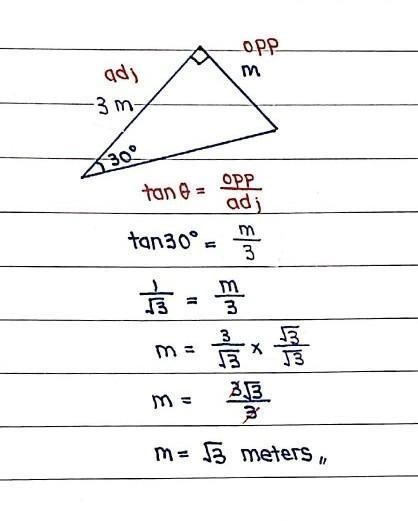 adj
opp
3 m
m
30°
tanθ = opp/adj
tan30° = m/3
1/√3 = m/3
m = 3/√3 × √3/√3
m = 3√3/3
m = √3 meters,,